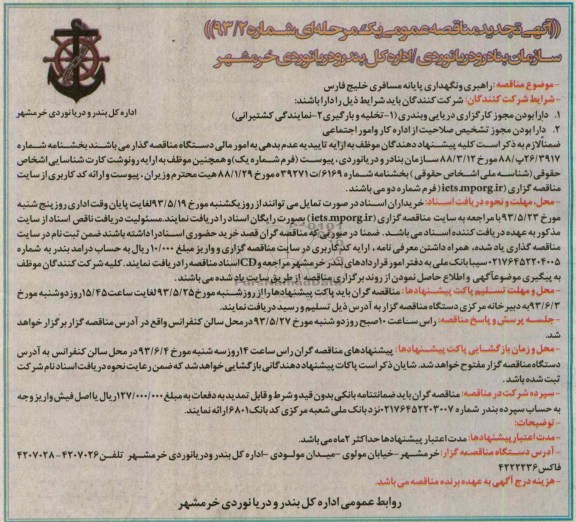 ((آگهی تجدید مناقصه عمومی یک مرحله‌ای شماره ۹۳/۲))
سازمان بنادر و دریانوردی / اداره کل بندر و دریانوردی خرمشهر
اداره کل بندر و دریانوردی خرمشهر
- موضوع مناقصه: راهبری و نگهداری پایانه مسافری خلیج فارس
- شرایط شرکت کنندگان: شرکت کنندگان باید شرایط ذیل را دارا باشند:
۱. دارا بودن مجوز کارگزاری دریایی و بندری (۱-تخلیه و بارگیری ۲-نمایندگی کشتیرانی)
۲. دارا بودن مجوز تشخیص صلاحیت از اداره کار و امور اجتماعی
ضمناً لازم به ذکر است کلیه پیشنهاد دهندگان موظف به ارایه تاییدیه عدم بدهی به امور مالی دستگاه مناقصه گذار می باشند بخشنامه شماره
۲۶/۳۹۱۷/پ/۸۸ مورخ ۸۸/۳/۱۲ سازمان بنادر و دریانوردی، پیوست (فرم شماره یک) و همچنین موظف به ارایه رونوشت کارت شناسایی اشخاص
حقوقی (شناسه ملی اشخاص حقوقی) بخشنامه شماره ۱۶۱۶۹/ت ۳۹۲۷۱ه مورخ ۸۸/۱/۲۹ هیت محترم وزیران، پیوست و ارائه کد کاربری از سایت
مناقصه گزاری (iets.mporg.ir) (فرم شماره دو می باشند.
- محل، مهلت و نحوه دریافت اسناد: خریداران اسناد در صورت تمایل می توانند از روز یکشنبه مورخ ۹۳/۵/۱۹ لغایت پایان وقت اداری روز پنج شنبه
مورخ ۹۳/۵/۲۳ با مراجعه به سایت مناقصه گزاری (iets.mporg.ir) بصورت رایگان اسناد را دریافت نمایند. مسئولیت دریافت ناقص اسناد از سایت
مذکور به عهده دریافت کننده اسناد می باشد. ضمناً در صورتی که مناقصه گران قصد خرید حضوری اسناد را داشته باشند ضمن ثبت نام در سایت
مناقصه گذاری یاد شده، همراه داشتن معرفی نامه، ارایه کد کاربری در سایت مناقصه گزاری و واریز مبلغ ۱۰/۰۰۰ ریال به حساب درآمد بندر به شماره
۲۱۷۶۴۵۲۲۰۴۰۰۵ سیبا بانک ملی به دفتر امور قراردادهای بندر خرمشهر مراجعه و CD اسناد مناقصه را دریافت نمایند. کلیه شرکت کنندگان موظف
به پیگیری موضوعاً آگهی و اطلاع حاصل نمودن از روند برگزاری مناقصه از طریق سایت یاد شده می باشند.
- محل و مهلت تسلیم پاکت پیشنهادها: مناقصه گران باید پاکت پیشنهادها را از روز شنبه مورخ ۹۳/۵/۲۵ لغایت ساعت ۱۵/۴۵ روز دوشنبه مورخ
۹۳/۶/۳ به دبیرخانه مرکزی دستگاه مناقصه گزار به آدرس ذیل تسلیم و رسید دریافت نمایند.
- جلسه پرسش و پاسخ مناقصه: راس ساعت ۱۰ صبح روز دوشنبه مورخ ۹۳/۵/۲۷ در محل سالن کنفرانس واقع در آدرس مناقصه گزار برگزار خواهد
شد.
- محل و زمان بازگشایی پاکت پیشنهادها: پیشنهادهای مناقصه گران راس ساعت ۱۴ روز سه شنبه مورخ ۹۳/۶/۴ در محل سالن کنفرانس به آدرس
دستگاه مناقصه گزار مفتوح خواهد شد. شایان ذکر است پاکات پیشنهاد دهندگانی بازگشایی خواهد شد که ضمن رعایت نحوه دریافت اسناد نام شرکت
ثبت شده باشد.
- سپرده شرکت در مناقصه: مناقصه گران باید ضمانتنامه بانکی بدون قید و شرط و قابل تمدید به دفعات به مبلغ ۱۲۷/۰۰۰/۰۰۰ ریال یا اصل فیش واریز وجه
به حساب سپرده بندر شماره ۲۱۷۶۴۵۲۲۰۳۰۰۷ نزد بانک ملی شعبه مرکزی کد بانک ۶۸۰۱ ارائه نمایند.
- توضیحات:
- مدت اعتبار پیشنهادها: مدت اعتبار پیشنهادها حداکثر ۲ ماه می باشد.
- آدرس دستگاه مناقصه گزار: خرمشهر - خیابان مولوی - میدان مولودی - اداره کل بندر و دریانوردی خرمشهر تلفن ۴۲۰۷۰۲۶ - ۴۲۰۷۰۲۸
فاکس ۴۲۲۲۲۳۶
- هزینه درج آگهی به عهده برنده مناقصه می باشد.
روابط عمومی اداره کل بندر و دریانوردی خرمشهر